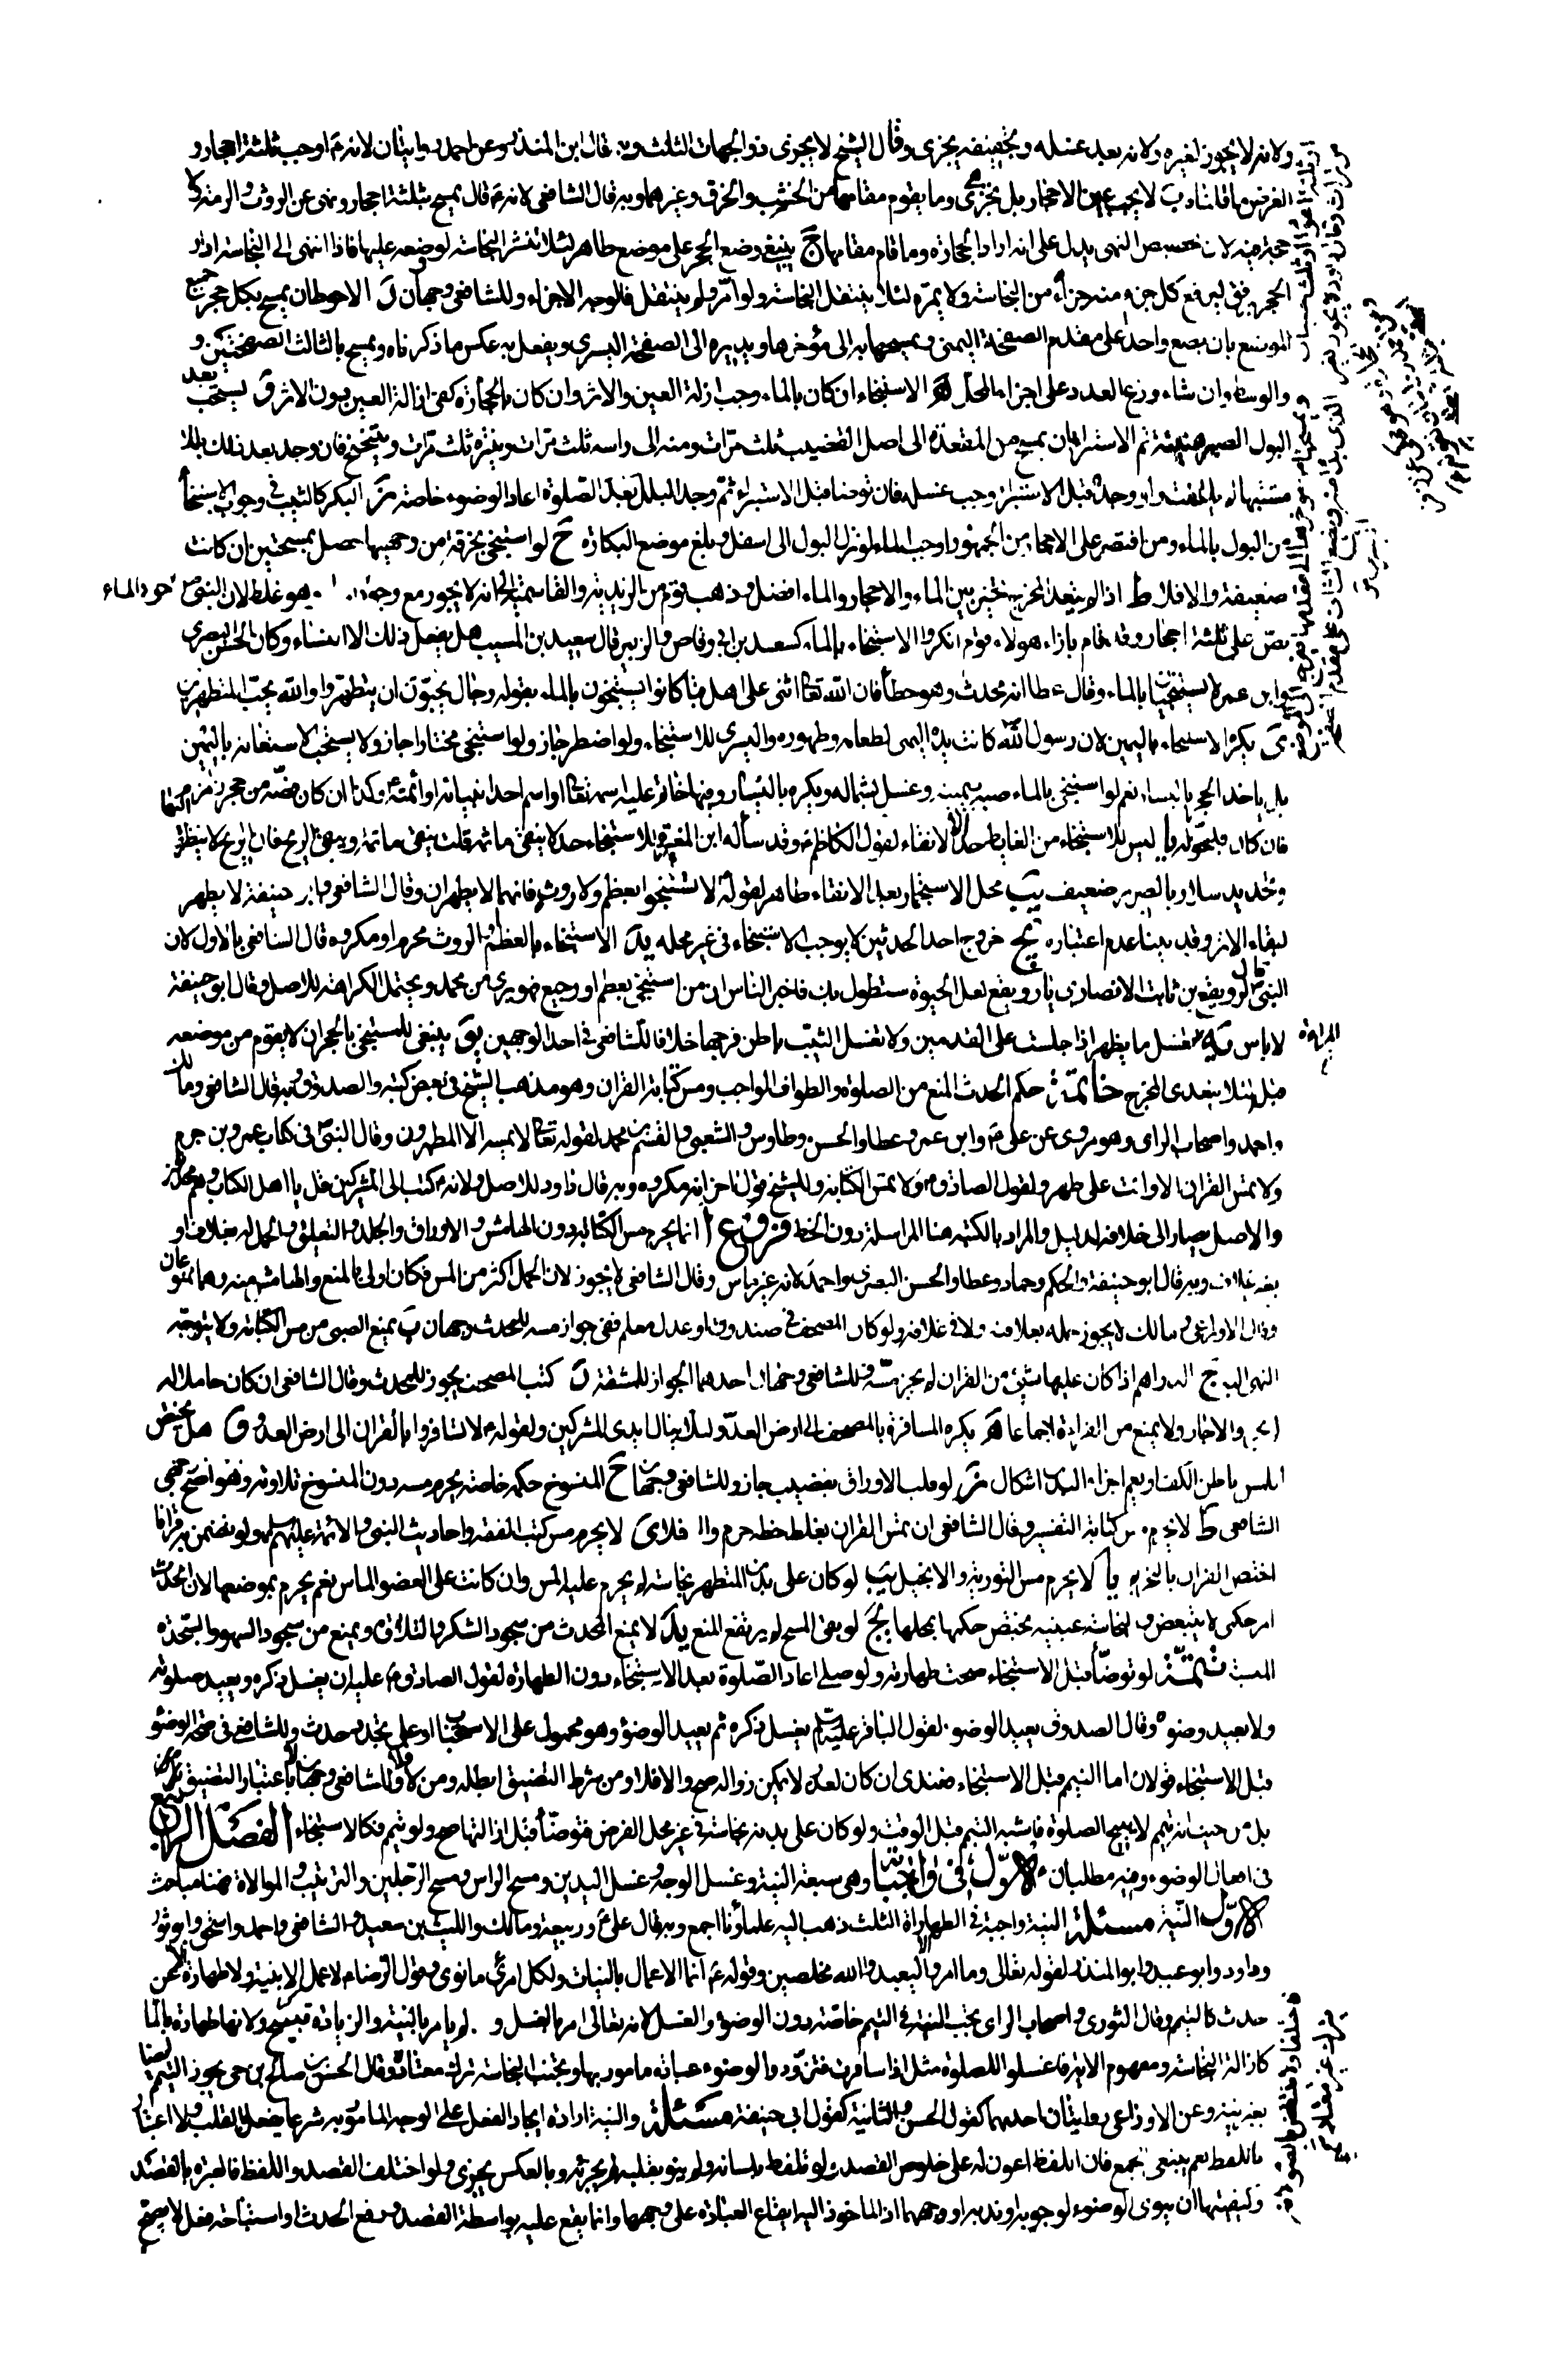 ولانه لا يجوز لغيره ولانه بعد غسله وتجفيفه يجزى وقال الشيخ لا يجزى ذو الجهات الثلث وبه قال ابن المنذر وعن احمد روايتان لانه ع اوجب ثلثة احجار و
الغرض ما قلناه ب لا يجب عين الاحجار بل يجزى هى وما يقوم مقامها من الخشب والخرق وغيرهما وبه قال الشافعى لانه ع قال يمسح بثلثة احجار ونهى عن الروث والرمة ولا
حجة فيه لان تخصيص النهى يدل على انه اراد الحجارة وما قام مقامها ج ينبغى وضع الحجر على موضع طاهر لئلا تنشر النجاسة لو وضعه عليها فاذا انتهى الى النجاسة ادار
الحجر برفق ليرفع كل جزء منه جزءا من النجاسة ولا يمره لئلا ينتقل النجاسة ولو امر ولم ينتقل فالوجه الاجزاء وللشافعى وجهان د الاحوط ان يمسح بكل حجر جميع
الموضع بان يضع واحدا على مقدم الصفحة اليمنى ويمسحها به الى مؤخرها ويديره الى الصفحة اليسرى ويفعل به عكس ما ذكرناه ويمسح بالثالث الصفحتين و
والوسط وان شاء وزع العدد على اجزاء المحل ه الاستنجاء ان كان بالماء وجب ازالة العين والاثر وان كان بالحجارة كفى ازالة العين دون الاثر و يستحب بعد
البول الصبر هنيئة ثم الاستبراء بان يمسح من المقعدة الى اصل القضيب ثلث مرات ومنه الى راسه ثلث مرات وينتره ثلث مرات ويتنحنح فان وجد بعد ذلك بللا
مشتبها لم يلتفت ولو وجده قبل الاستبراء وجب غسله فان توضأ قبل الاستبراء ثم وجد البلل بعد الصلوة اعاد الوضوء خاصة ز البكر كالثيب فى وجوب الاستنجاء
من البول بالماء ومن اقتصر على الاحجار من الجمهور اوجب الماء لو نزل البول الى اسفل وبلغ موضع البكارة ح لو استنجى بخرقة من وجهيها حصل بمسحتين ان كانت
ضعيفة والا فلا ط اذا لم يتعد المخرج تخير بين الماء والاحجار والماء افضل وذهب قوم من الزيدية والقاسمية الى انه لا يجوز مع وجود الماء وهو غلط لان النبى ص
نص على ثلثة احجار وقد قام بازاء هولاء قوم انكروا الاستنجاء بالماء كسعد بن ابى وقاص والزبير قال سعيد بن المسيب هل يفعل ذلك الا النساء وكان الحسن البصرى
وابن عمر لا يستنجيان بالماء وقال عطا انه محدث وهو خطأ فان الله تعالى اثنى على اهل قبا كانوا يستنجون بالماء بقوله رجال يحبون ان يتطهروا والله يحب المتطهرين
ى يكره الاستنجاء باليمين لان رسول الله ص كانت يده اليمنى لطعامه وطهوره واليسرى للاستنجاء ولو اضطر جاز ولو استنجى مختارا جاز ولا يستحب الاستعانة باليمين
بل ياخذ الحجر باليسار نعم لو استنجى بالماء صبه بيمينه وغسل بشماله ويكره باليسار وفيها خاتم عليه اسم الله تعالى او اسم احد انبيائه او ائمته وكذا ان كان فصه من حجر زمزم
فان كان فليحوله يا ليس للاستنجاء من الغايط حد الا الانقاء لقول الكاظم ع وقد سأله ابن المغيرة للاستنجاء حد لا ينقى ما ثمة قلت ينقى ما ثمة ويبقى الريح قال الريح لا ينظر اليها
وتحديد سلار بالصرير ضعيف يب محل الاستجمار بعد الانقاء طاهر لقوله ع لا تستنجوا بعظم ولا روث فانهما لا يطهران وقال الشافعى وابو حنيفة لا يطهر
لبقاء الاثر وقد بينا عدم اعتباره يج خروج احد الحدثين لا يوجب الاستنجاء فى غير محله يد الاستنجاء بالعظم والروث محرم او مكروه قال الشافعى بالاول لان
النبى ص قال لرويفع بن ثابت الانصارى يا رويفع لعل الحيوة ستطول بك فاخبر الناس ان من استنجى بعظم او رجيع فهو برئ من محمد ويحتمل الكراهة للاصل وقال ابو حنيفة
لا باس يه المراة تغسل ما يظهر اذا جلست على القدمين ولا تغسل الثيب باطن فرجها خلافا للشافعى فى احد الوجهين يو ينبغى للمستنجى بالحجر ان لا يقوم من موضعه
قبله لئلا يتعدى المخرج خاتمة حكم الحدث المنع من الصلوة والطواف الواجب ومس كتابة القران وهو مذهب الشيخ فى بعض كتبه والصدوق وبه قال الشافعى ومالك
واحمد واصحاب الراى وهو مروى عن على ع وابن عمر وعطا والحسن وطاوس والشعبى والقسم بن محمد لقوله تعالى لا يمسه الا المطهرون وقال النبى ص فى كتاب عمرو بن حزم
ولا تمس القران الا وانت على طهر ولقول الصادق ع ولا تمس الكتابة وللشيخ قول اخر انه مكروه وبه قال داود للاصل ولانه ع كتب الى المشركين قل يا اهل الكتاب وهم محدثون
والاصل يصار الى خلافه لدليل والمراد بالكتبة هنا المراسلة دون الخط فروع ا انما يحرم مس الكتابة دون الهامش والاوراق والجلد والتعليق والحمل له بغلاف او
بغير غلاف وبه قال ابو حنيفة والحكم وحماد وعطا والحسن البصرى واحمد لانه غير ماس وقال الشافعى لا يجوز لان الحمل اكثر من المس فكان اولى بالمنع والهامش منه وهما ممنوعان
وقال الاوزاعى ومالك لا يجوز حمله بعلاقته ولا فى غلافه ولو كان المصحف فى صندوق او عدل معلم ففى جواز مسه للمحدث وجهان ب يمنع الصبى من مس الكتابة ولا يتوجه
النهى اليه ج الدراهم اذا كان عليها شئ من القران لم يجز مسه وللشافعى وجهان احدهما الجواز للمشقة د كتب المصحف يجوز للمحدث وقال الشافعى ان كان حاملا له
لم يجز والا جاز ولا يمنع من القراءة اجماعا ه يكره المسافرة بالمصحف الى ارض العدو لئلا ينال ايدى المشركين ولقوله ع لا تسافروا بالقران الى ارض العدو و هل يختص
اللمس باطن الكف او يعم اجزاء البدن اشكال ز لو قلب الاوراق بقضيب جاز وللشافعى وجهان ح المنسوخ حكمه خاصة يحرم مسه دون المنسوخ تلاوته وهو اصح وجهى
الشافعى ط لا يحرم مس كتابة التفسير وقال الشافعى ان تميز القران بغلط خطه حرم والا فلا ى لا يحرم مس كتب الفقه واحاديث النبى والائمة عليهم السلم ولو تضمن قرانا
اختص القران بالتحريم يا لا يحرم مس التورية والانجيل يب لو كان على بدن المتطهر نجاسة لم يحرم عليه المس وان كانت على العضو الماس نعم يحرم بموضعها لان الحدث
امر حكمى لا يتبعض والنجاسة عينية يختص حكمها بمحلها يج لو بقى المسح لم يرتفع المنع يد لا يمنع المحدث من سجود الشكر والتلاوة ويمنع من سجود السهو والسجدة
المنسية تتمة لو توضأ قبل الاستنجاء صحت طهارته ولو صلى اعاد الصلوة بعد الاستنجاء دون الطهارة لقول الصادق ع عليه ان يغسل ذكره ويعيد صلوته
ولا يعيد وضوه وقال الصدوق يعيد الوضوء لقول الباقر عليه السلم يغسل ذكره ثم يعيد الوضوء وهو محمول على الاستحباب او على تجدد حدث وللشافعى فى صحة الوضوء
قبل الاستنجاء قولان اما التيمم قبل الاستنجاء فعندى ان كان لعذر لا يمكن زواله صح والا فلا ومن شرط التضيق ابطله ومن لا فلا وللشافعى وجهان لا باعتبار التضيق
بل من حيث انه تيمم لا يبيح الصلوة فاشبه التيمم قبل الوقت ولو كان على بدنه نجاسة فى غير محل الفرض فتوضأ قبل ازالتها صح ولو تيمم فكالاستنجاء الفصل الرابع
فى افعال الوضوء وفيه مطلبان الاول فى واجباته وهى سبعة النية وغسل الوجه وغسل اليدين ومسح الراس ومسح الرجلين والترتيب والموالاة فهنا مباحث
الاول النية مسئلة النية واجبة فى الطهارات الثلث ذهب اليه علماؤنا اجمع وبه قال على ع وربيعة ومالك والليث بن سعد والشافعى واحمد واسحق وابو ثور
وداود وابو عبيد وابن المنذر لقوله تعالى وما امروا الا ليعبدوا الله مخلصين وقوله ع انما الاعمال بالنيات ولكل امرئ ما نوى وقول الرضا ع لا عمل الا بنية ولانها طهارة عن
حدث كالتيمم وقال الثورى واصحاب الراى تجب النية فى التيمم خاصة دون الوضوء والغسل لانه تعالى امر بالغسل ولم يامر بالنية والزيادة نسخ ولانها طهارة بالماء
كازالة النجاسة ومفهوم الاية فاغسلوا للصلوة مثل اذا سافرت فتزود والوضوء عبادة مامور بها وتجنب النجاسة ترك معتاد وقال الحسن بن صالح بن حى يجوز التيمم ايضا
بغير نية وعن الاوزاعى روايتان احدهما كقول الحسن والثانية كقول ابى حنيفة مسئلة والنية ارادة ايجاد الفعل على الوجه المامور به شرعا يفعل بالقلب ولا اعتبار
باللفظ نعم ينبغى الجمع فان اللفظ اعون له على خلوص القصد ولو تلفظ بلسانه ولم ينو بقلبه لم يجزئه وبالعكس يجزى ولو اختلف القصد واللفظ فالعبرة بالقصد
وكيفيتها ان ينوى الوضوء لوجوبه او ندبه او وجههما اذ الماخوذ اليه ايقاع العبادة على وجهها وانما يقع عليه بواسطة القصد ورفع الحدث او استباحة فعل لا يصح